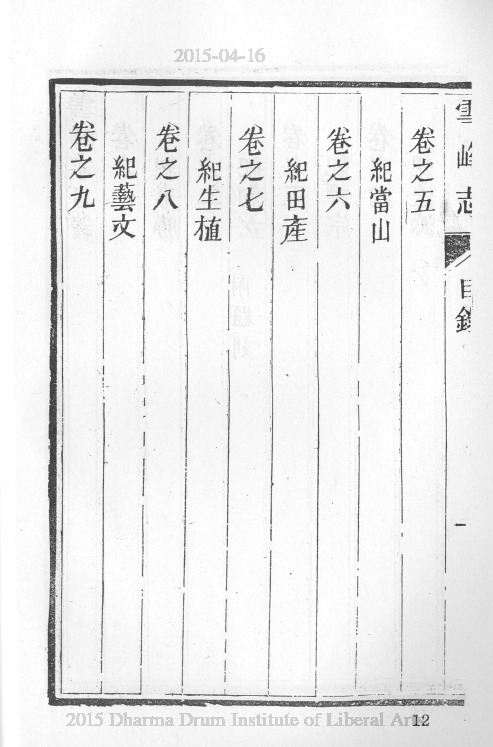 2015-04-16
雪峰志
目錄
一
卷之五
紀當山
卷之六
紀田產
卷之七
紀生植
卷之八
紀藝文
卷之九
2015 Dharma Drum Institute of Liberal Arts
12